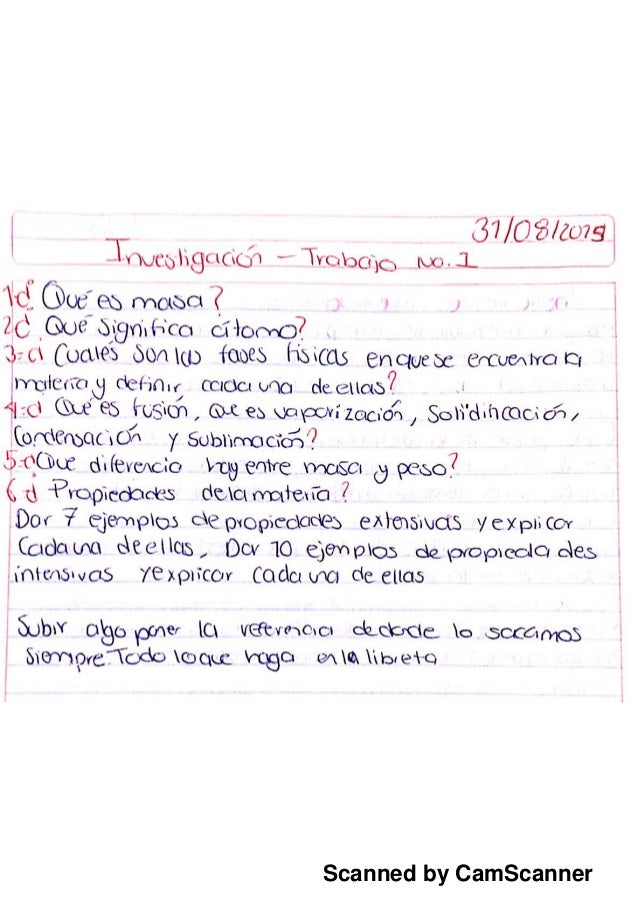 31/08/2019
Investigación - Trabajo No. 1
1¿ Qué es masa?
2¿ Qué significa átomo?
3=¿ Cuáles son las fases físicas en que se encuentra la
materia y definir cada una de ellas?
4=¿ Qué es fusión, Que es vaporización, Solidificación,
Condensación y Sublimación?
5-¿Que diferencia hay entre masa y peso?
6 ¿ Propiedades de la materia?
Dar 7 ejemplos de propiedades extensivas y explicar
Cada una de ellas. Dar 10 ejemplos de propiedades
intensivas y explicar cada una de ellas
Subir algo poner la referencia de donde lo sacamos
Siempre. Todo lo que haga en la libreta
Scanned by CamScanner